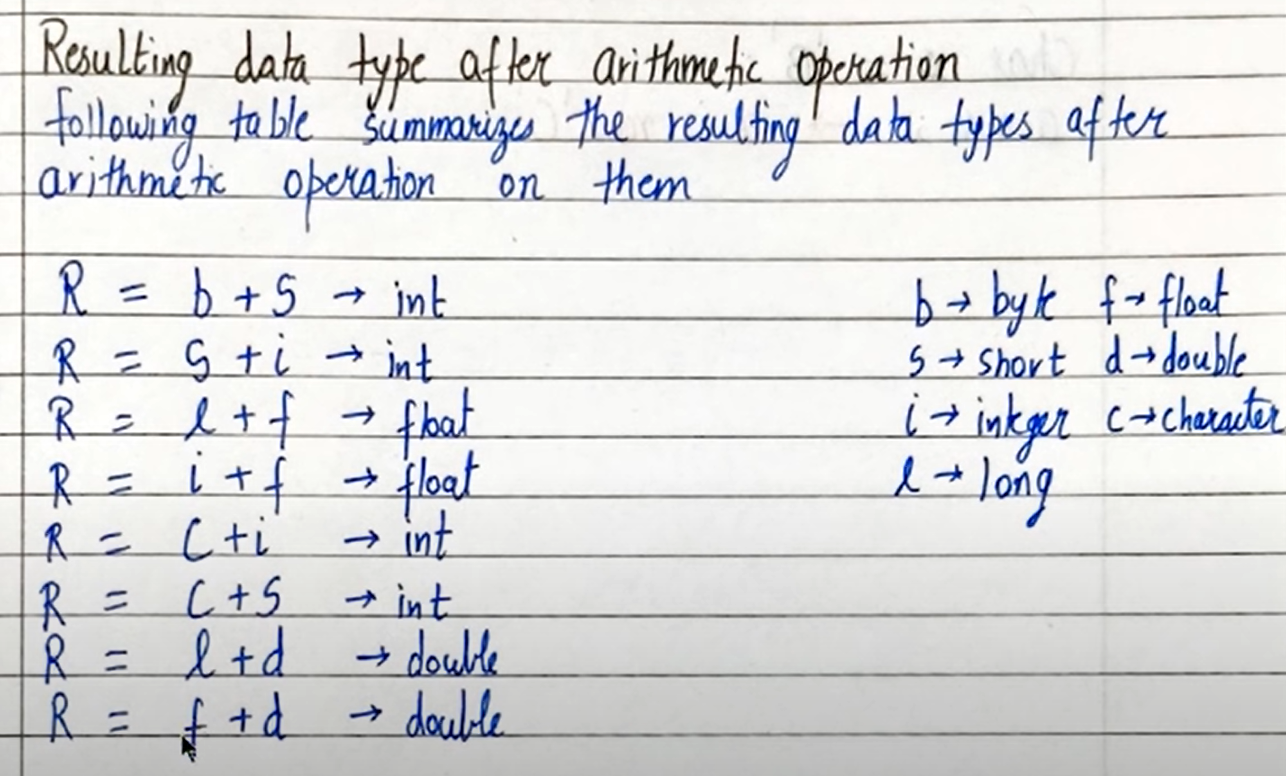 Resulting data type after arithmetic operation
following table summarizes the resulting data types after
arithmetic operation on them
R = b + s → int
R = s + i → int
R = l + f → float
R = i + f → float
R = c + i → int
R = c + s → int
R = l + d → double
R = f + d → double
b → byte f → float
s → short d → double
i → integer c → character
l → long